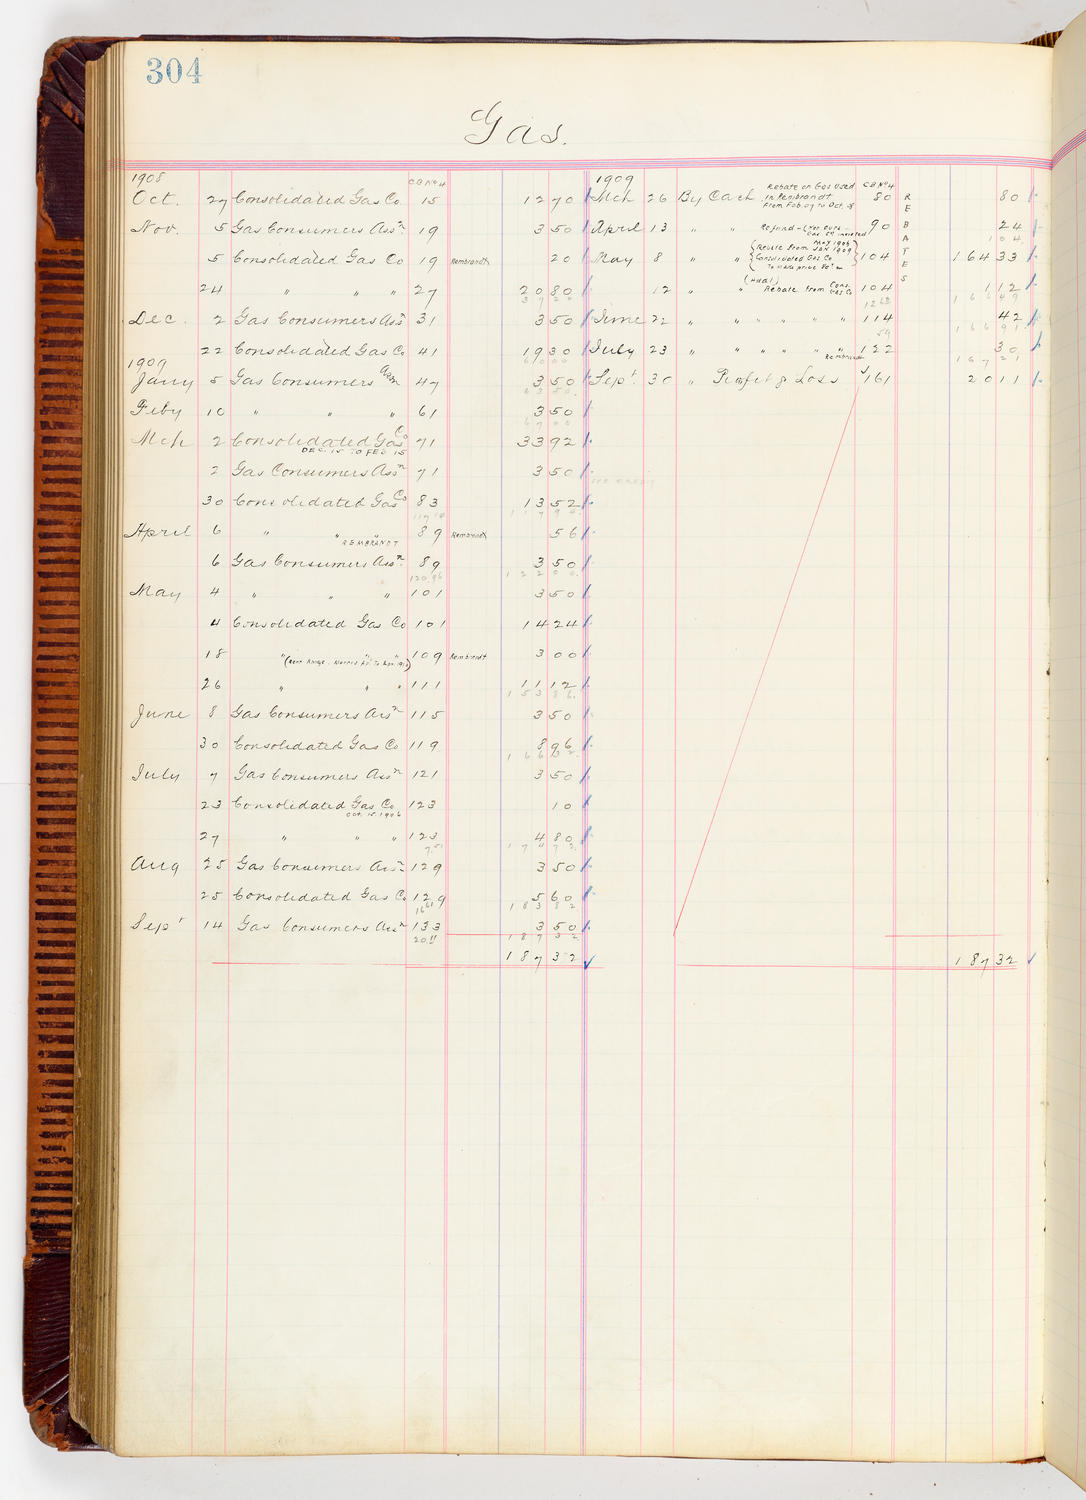 304
Gas.
1908 CB No 4
Oct. 27 Consolidated Gas Co. 15 12 70
Nov. 5 Gas Consumers Assn 19 3 50
5 Consolidated Gas Co 19 Rembrandt 20
24 " " " 27 20 80
37 20
Dec. 2 Gas Consumers Assn 31 3 50
22 Consolidated Gas Co 41 19 30
1909 60 00
Jany 5 Gas Consumers Assn 47 3 50
63 50
Feby 10 " " " 61 3 50
67 00
Mch 2 Consolidated Gas Co 71 33 92
DEC. 15 TO FEB 15
2 Gas Consumers Assn 71 3 50
30 Consolidated Gas Co 83 13 52
117 94
April 6 " " " 89 Rembrandt 56
REMBRANDT
6 Gas Consumers Assn 89 3 50
120.96 122 00
May 4 " " " 101 3 50
4 Consolidated Gas Co 101 14 24
18 " " 109 Rembrandt 3 00
26 " " " 111 11 12
153 86
June 8 Gas Consumers Assn 115 3 50
30 Consolidated Gas Co 119 8 96
166 32
July 7 Gas Consumers Assn 121 3 50
23 Consolidated Gas Co 123 10
Oct. 15. 1906
27 " " " 123 4 80
7.51 174 72
Aug 25 Gas Consumers Assn 129 3 50
25 Consolidated Gas Co 129 5 60
16 61 183 82
Sept 14 Gas Consumers Assn 133 3 50
20.11 187 32
187 32
1909 CB No 4
Mch 26 By Cash Rebate on Gas Used in Rembrandt From Feb. 07 to Oct. 08 80 80
REBATES
April 13 " " Refund 90 24
1 04
May 8 " " (Rebate From May 1906 Jan 1909 Consolidated Gas Co. To make price 80¢) 104 164 33
12 " " (Hual) Rebate From Cons. Gas Co 104 1 12
12 62 166 49
June 22 " " " " " " 114 42
54 166 91
July 23 " " " " " " 122 30
Rembrandt 167 21
Sept. 30 " Profit & Loss 161 20 11
187 32